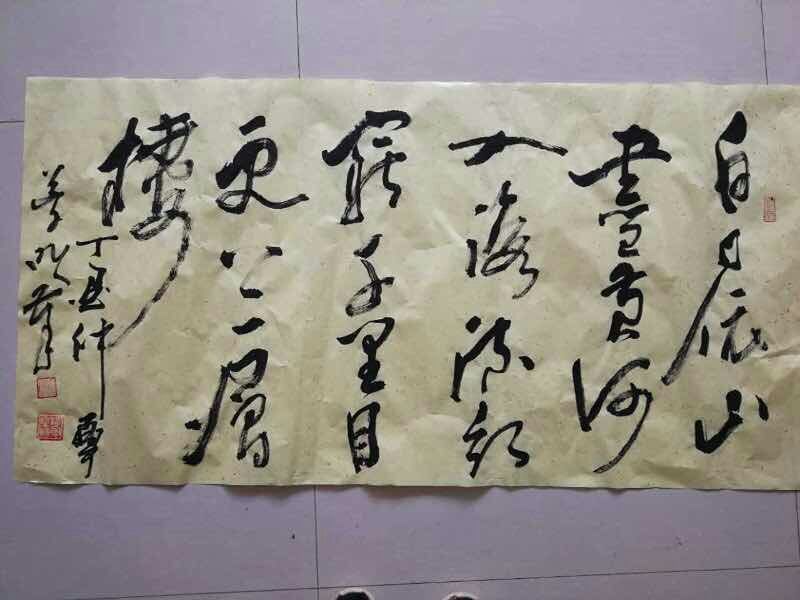 白日依山
盡黄河
入海流欲
窮千里目
更上一層
樓
丁酉仲夏